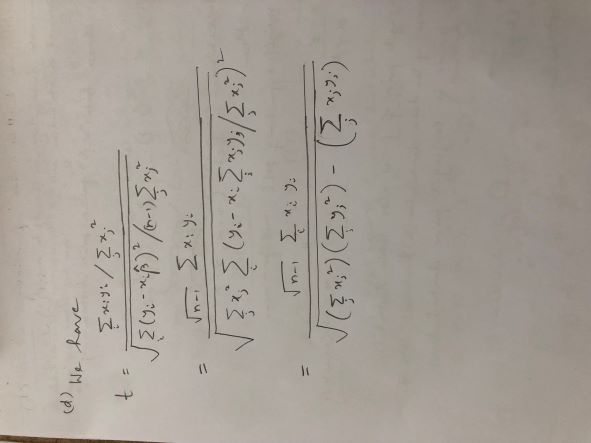 (d) We have
t = Σᵢ xᵢyᵢ / Σⱼ xⱼ² / √(Σᵢ (yᵢ - xᵢβ̂)² / (n-1) Σⱼ xⱼ²)
= √n-1 Σᵢ xᵢ yᵢ / √(Σⱼ xⱼ² Σᵢ (yᵢ - xᵢ Σⱼ xⱼyⱼ / Σⱼ xⱼ²)²)
= √n-1 Σᵢ xᵢ yᵢ / √((Σⱼ xⱼ²)(Σⱼ yⱼ²) - (Σⱼ xⱼyⱼ)